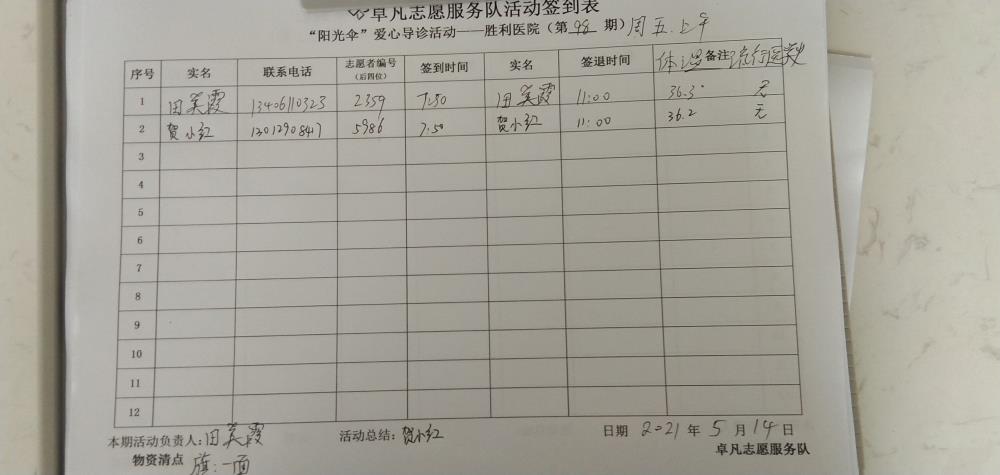 卓凡志愿服务队活动签到表
“阳光伞”爱心导诊活动——胜利医院(第 98 期)周五上午
序号 实名 联系电话 志愿者编号(后四位) 签到时间 实名 签退时间 体温 备注 流行医史
1 田美霞 13406110323 2359 7:50 田美霞 11:00 36.3° 无
2 贺小红 5986 7:50 贺小红 11:00 36.2 无
3
4
5
6
7
8
9
10
11
12
本期活动负责人:田美霞 活动总结:贺小红 日期 2021 年 5 月 14 日
物资清点 旗:一面 卓凡志愿服务队